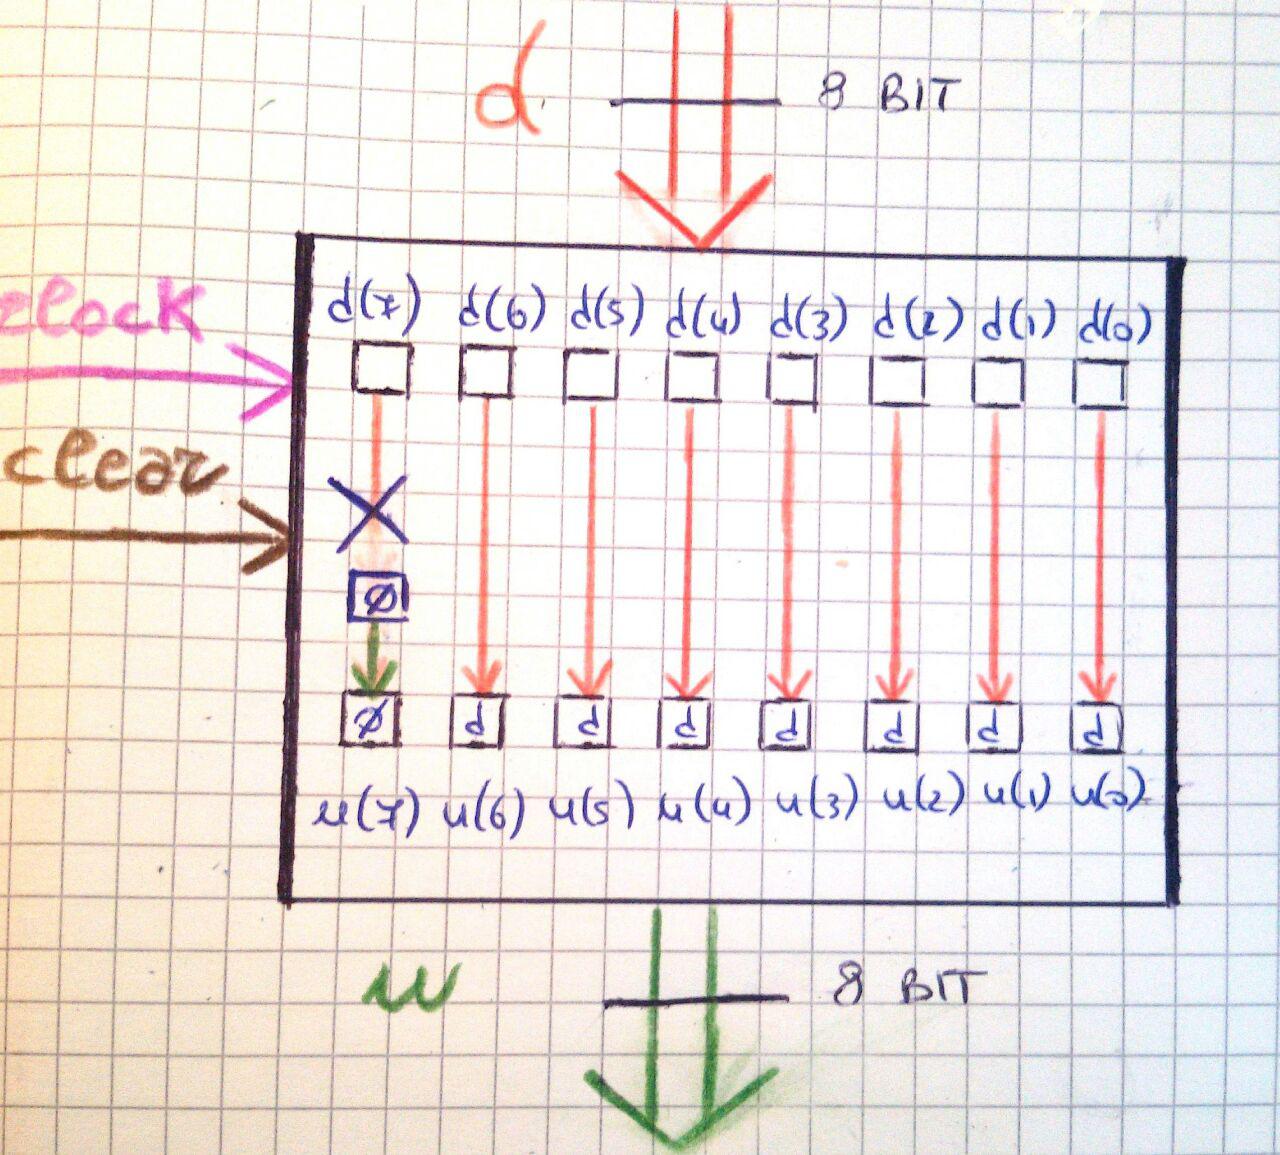 d 8 BIT
clock
d(7) d(6) d(5) d(4) d(3) d(2) d(1) d(0)
clear
Ø
Ø d d d d d d d
u(7) u(6) u(5) u(4) u(3) u(2) u(1) u(0)
u 8 BIT